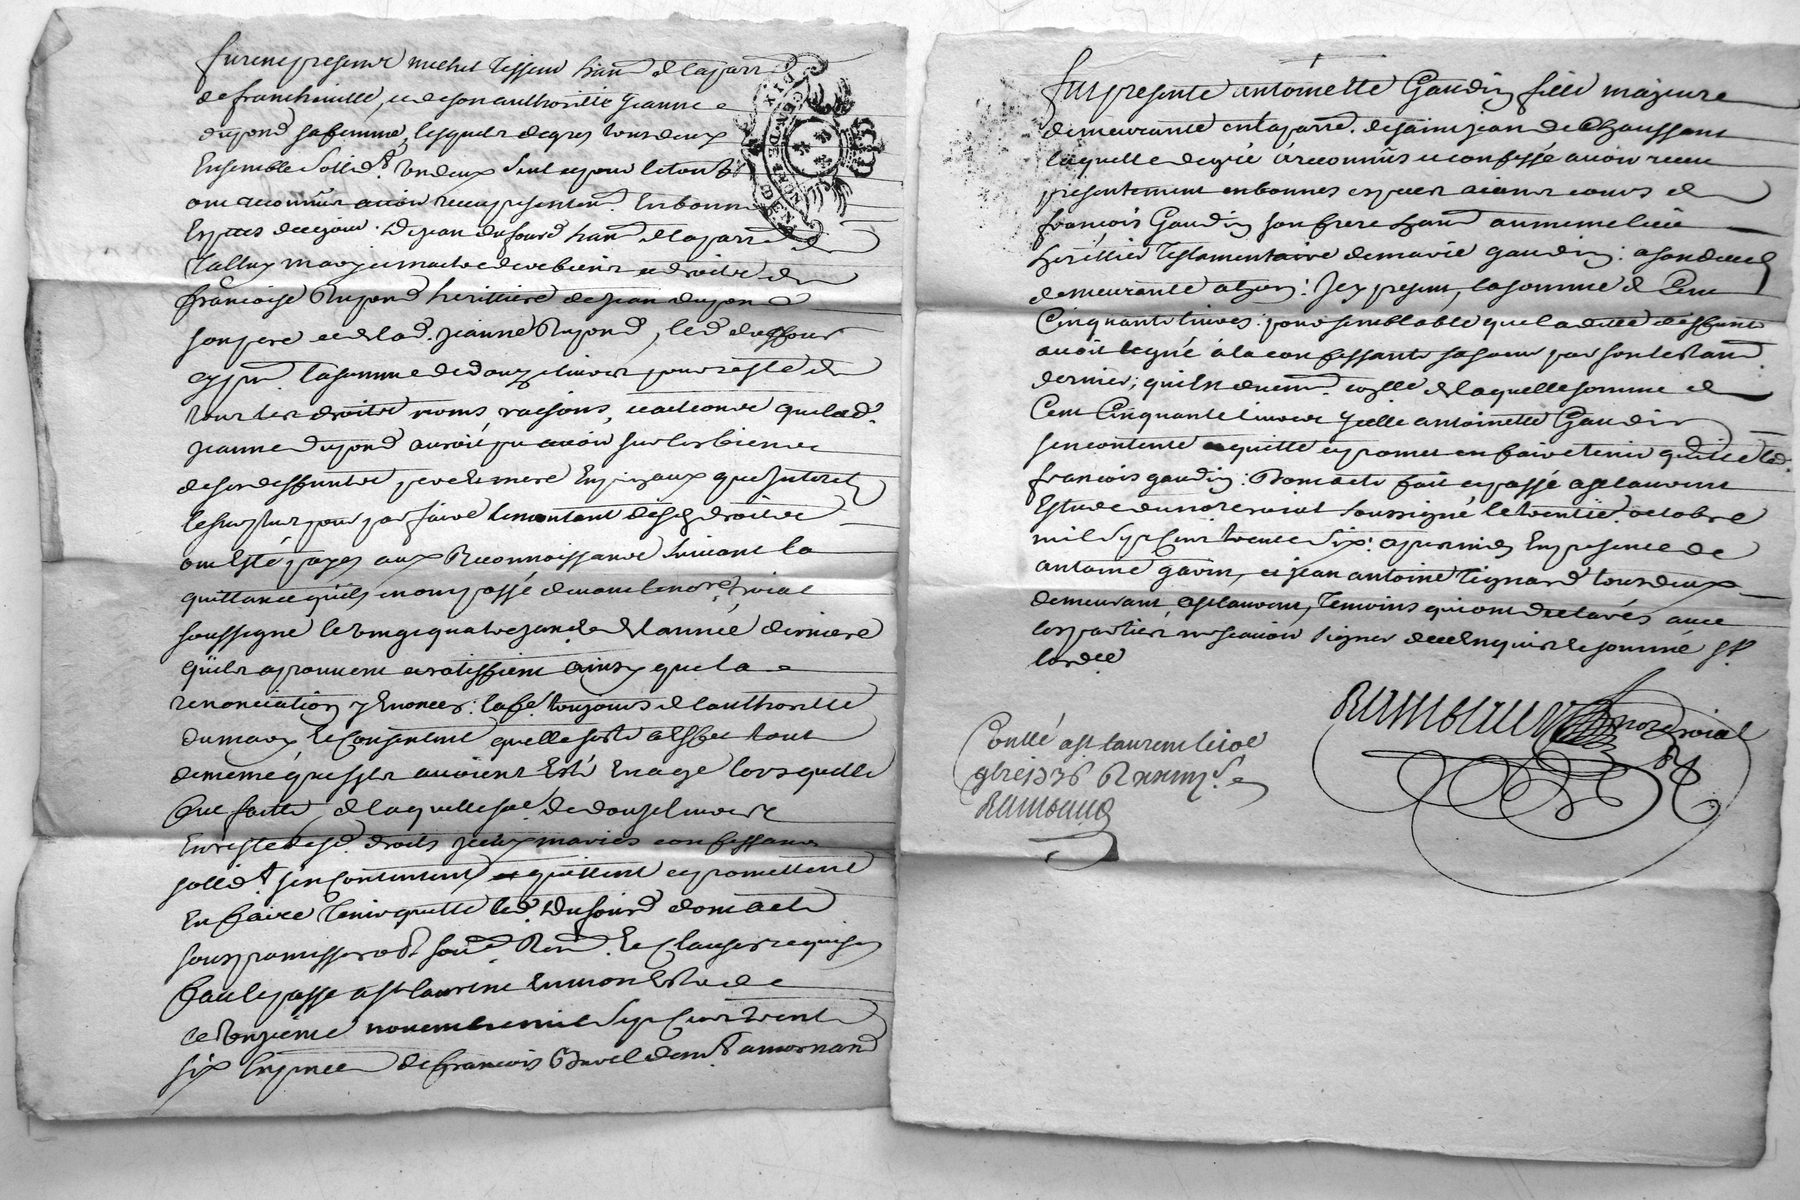 furent presents michel Tisseur han^t de la parr^e
de francheville, et de son authorité Jeanne
dupond sa femme, lesquels de gres tous deux
Ensemble sollid^t l'un deux seul et pour le tout
ont reconnus avoir receu presentem^t En bonnes
Espèces de ce jour. De Jean dufourd han^t de la parr^e de
Talluy mary et maitre des biens et droits de
françoise Dupond heritiere de Jean dupond
son pere et de lad. Jeanne Dupond, led. dufour
cy pnt. la somme de douze livres pour reste de
tous les droits noms raisons, et actions que lad^e
jeanne dupond auroit pu avoir sur les biens
de ses deffunts pere et mere En principaux que Interets
le surplus pour parfaire le montant desd. droits
ont Esté payés aux Reconnoissance suivant la
quittance qu'ils en ont passé devant le not^re Roial
soussigné le vingt quatre jan. de l'année derniere
qu'ils aprouvent et ratiffient ainsy que la
renonciation y Enoncée: la fe. toujours de l'authorité
du mary, Et consentent quelle sorte a Effet tout
de meme que s'ils avoient Esté En age lors quelle
fut faitte, de laquelle so^e. de douze livres
En reste desd. droits jceux mariés confessants
sollid^t sen contentent et quittent et promettent
En faire Tenir quitte led. Dufourd dont acte
sous promisses obl. soum. Ren. Et clauses requises
fait et passé a st laurent En mon Estude
ce onzieme novembre mil sept cent trente
six En pnce de françois Duvel dem^t a mornand
CINQ DEN
fut presente antoinette Gaudin fille majeure
demeurante en la parr^e. de saint jean de Chaussant
laquelle de gré a reconnus et confessé avoir receu
presentement en bonnes especes aiant cours de
françois Gaudin son frere han^t au meme lieu
heritier Testamentaire de marie gaudin: a son deced
demeurante a lyon: Jcy present, la somme de Cent
Cinquante livres: pour semblable que ladite deffunte
avoit legué à la confessante sa soeur par son testam^t
dernier; qu'ils de laquelle somme de
Cent Cinquante livres ycelle antoinette Gaudin
sen contente et quitte et promet en faire tenir quitte led.
françois gaudin: Dont acte fait et passé a st laurent
Estude du not. roial soussigné le trentie. octobre
mil sept cent trente six: apres midy En presence de
antoine gavin, et jean antoine Tignard tous deux
demeurant a st laurent, Temoins qui ont declarés avec
les parties ne scavoir signer de ce Enquis et sommé st
lad^e
Ramboud not Roial
Contllé a st laurent le 10e
9bre 1736 R
Ramboud